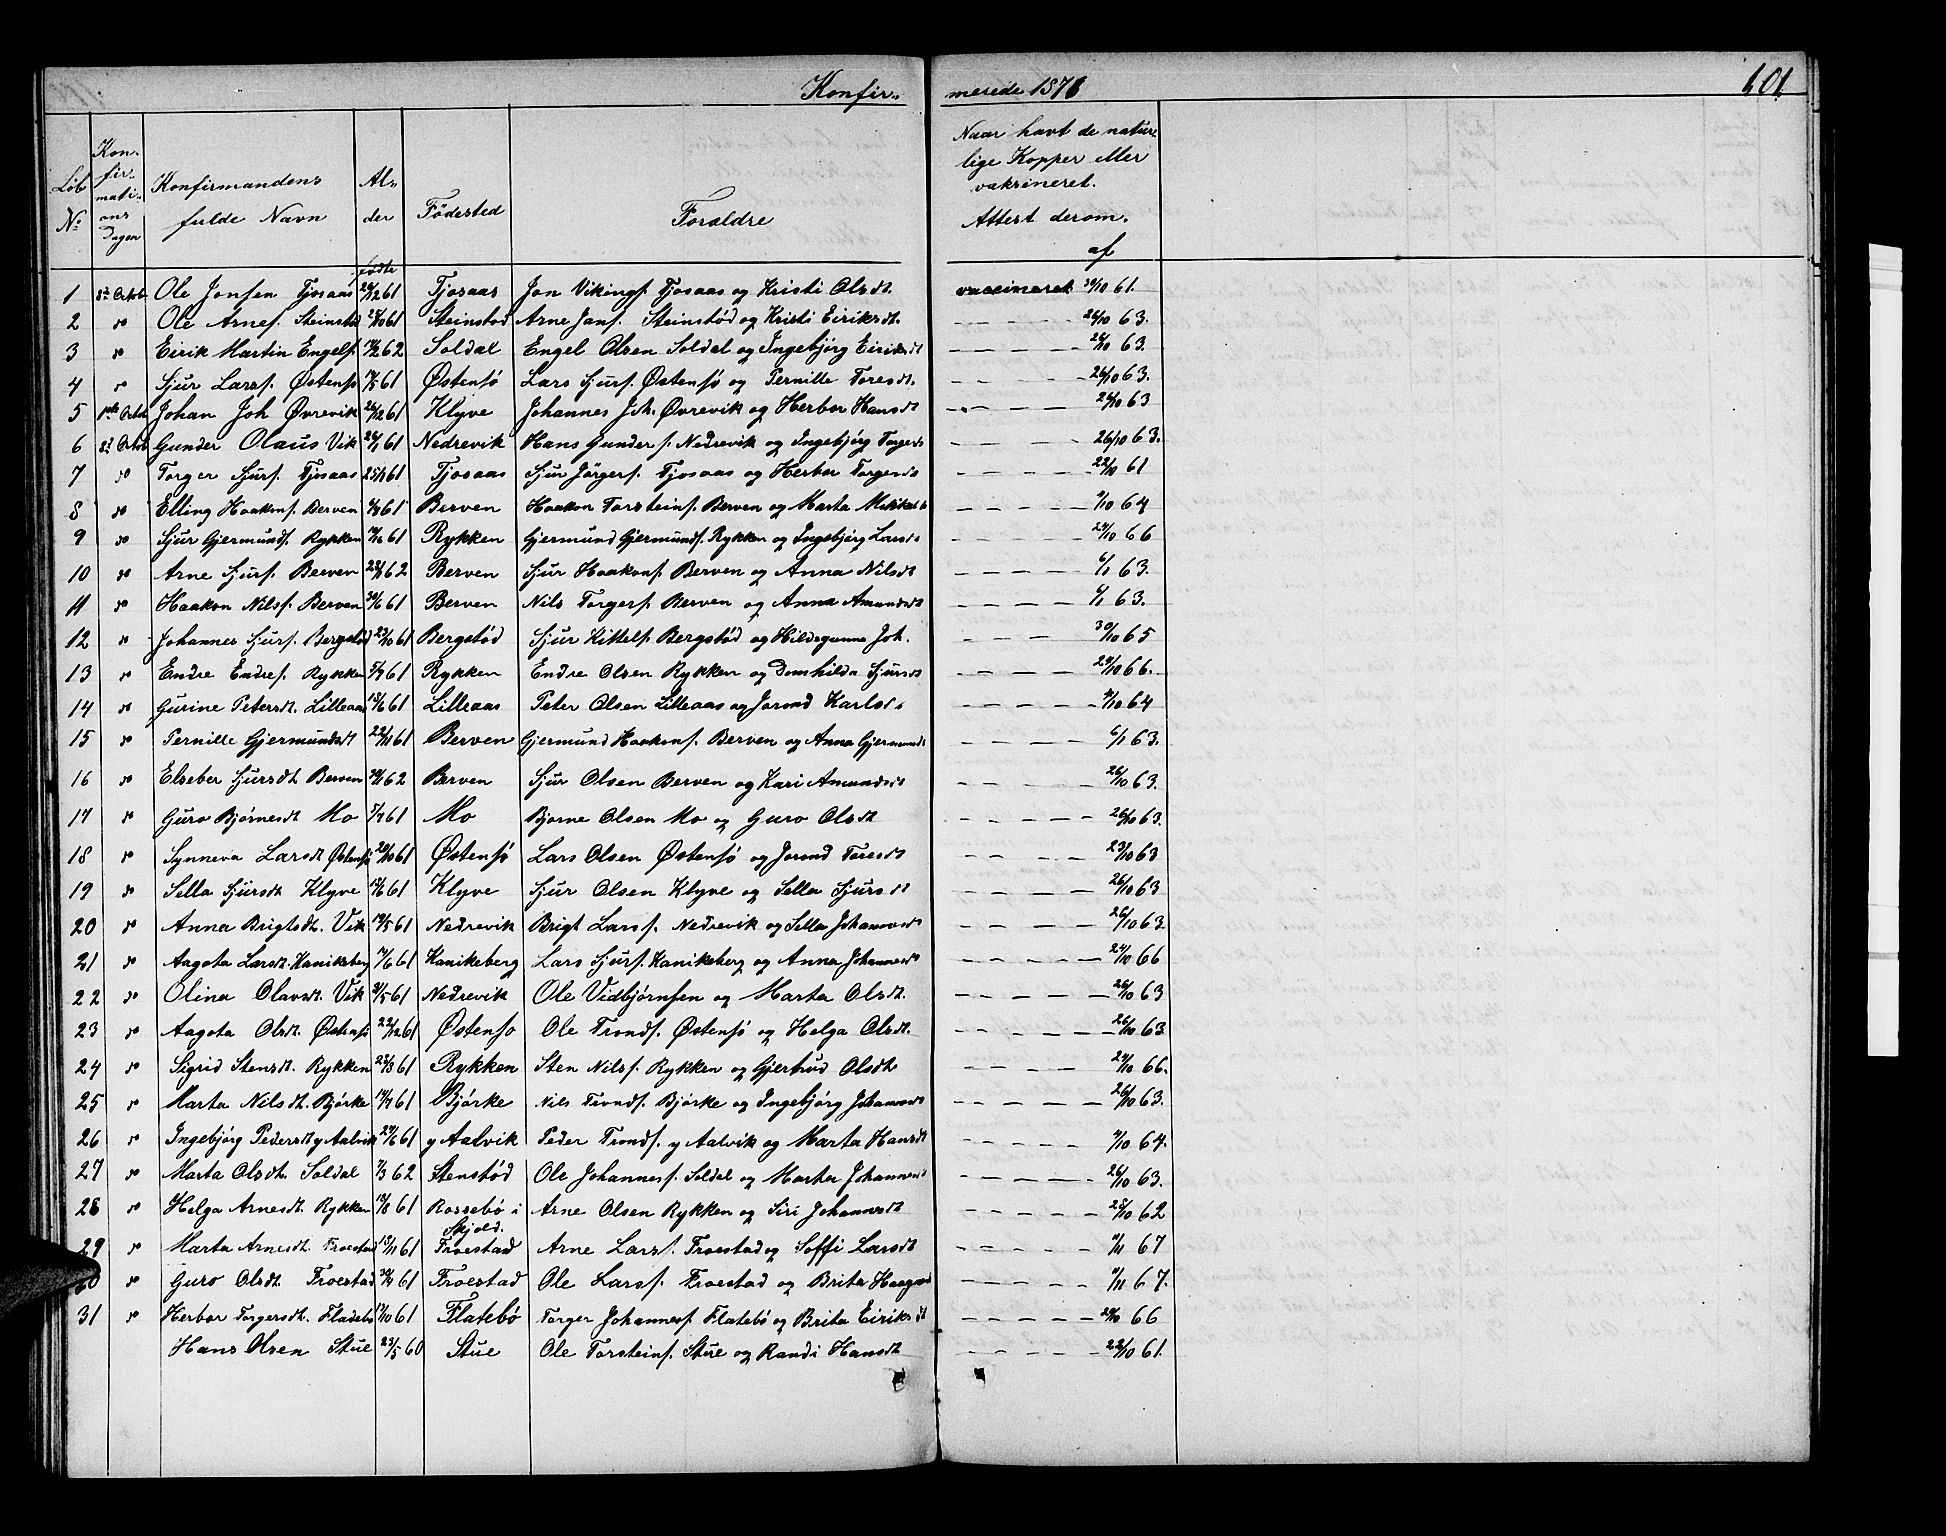 Konfir- merede 1876 101
Løb No
Kon- fir- mati- ons Dagen
Konfirmandens fulde Navn
Al- der
Födested
Foreldre
Naar havt de natur- lige Kopper eller vaksineret. Attest derom. af
fødte
1 8de Octob Ole Jonsen Tjosaas 61 Tjosaas Jon Vikingf. Tjosaas og Kristi Olsdt. vaccineret 61.
2 do Ole Arnef. Steinstöd 61 Steinstöd Arne Janf. Steinstöd og Kristi Eiriksdt. — — — — 26/10 63.
3 do Eirik Martin Engelf. 62 Soldal Engel Olsen Soldal og Ingebjörg Eiriksdt — — — — 26/10 63.
4 do Sjur Larsf. Østensö 61 Østensö Lars Sjurf. Østensö og Pernille Toresdt. — — — — 26/10 63.
5 Octob Johan Joh Øvrevik 61 Klyve Johannes Joh. Øvrevik og Herbor Hansdt — — — — 26/10 63
6 8de Octob Gunder Olaus Vik 61 Nedrevik Hans Gunderf. Nedrevik og Ingebjörg Torgersdt — — — — 26/10 63.
7 do Torger Sjurf. Tjosaas 61 Tjosaas Sjur Jörgerf. Tjosaas og Herbor Torgersdt — — — — 22/10 61
8 do Elling Haakonf. Berven 61 Berven Haakon Torsteinf. Berven og Marta — — — — 64
9 do Sjur Gjermundf. Rykken 61 Rykken Gjermund Gjermundf. Rykken og Ingebjörg Larsdt — — — — 66
10 do Arne Sjurf. Berven 62 Berven Sjur Haakonf. Berven og Anna Nilsdt — — — — 6/1 63.
11 do Haakon Nilsf. Berven 61 Berven Nils Torgerf. Berven og Anna Amundsdt — — — — 6/1 63.
12 do Johannes Sjurf. Bergstöd 61 Bergstöd Sjur Kittelf. Bergstöd og Hildegunna Joh. — — — — 30/10 65
13 do Endre Endref. Rykken 61 Rykken Endre Olsen Rykken og Domhilda Sjursdt — — — — 66.
14 do Gurine Petersdt. Lilleaas 61 Lilleaas Peter Olsen Lilleaas og Jorond Karlsdt — — — — 64
15 do Pernille Gjermundsdt 22/11 61 Berven Gjermund Haakonf. Berven og Anna Gjermundsdt — — — — 6/1 63.
16 do Elseber Sjursdt Berven 62 Berven Sjur Olsen Berven og Kari Amundsdt — — — — 26/10 63.
17 do Guro Björnesdt Mo 61 Mo Bjorne Olsen Mo og Guro Olsdt — — — — 26/10 63.
18 do Synneva Larsdt Østensö 61 Østensö Lars Olsen Østensö og Jorond Toresdt — — — — 23/10 63
19 do Sella Sjursdt Klyve 61 Klyve Sjur Olsen Klyve og Sella Sjursdt — — — — 26/10 63
20 do Anna Brigtsdt. Vik 61 Nedrevik Brigt Larsf. Nedrevik og Sella Johannesdt — — — — 26/10 63.
21 do Aagota Larsdt. Kanikeberg 61 Kanikeberg Lars Sjurf. Kanikeberg og Anna Johannesdt — — — — 66
22 do Olina Olavsdt. Vik 61 Nedrevik Ole Vidbjörnsen og Marta Olsdt. — — — — 26/10 63
23 do Aagota Olsdt. Østensö 22/12 61 Østensö Ole Trondf. Østensö og Helga Olsdt. — — — — 26/10 63.
24 do Sigrid Stensdt. Rykken 61 Rykken Sten Nilsf. Rykken og Gjertrud Olsdt — — — — 66.
25 do Marta Nilsdt. Björke 61 Björke Nils Trondf. Björke og Ingebjörg Johannesdt — — — — 26/10 63.
26 do Ingebjörg Pedersdt y Aalvik 61 y Aalvik Peder Trondf. y Aalvik og Marta Hansdt — — — — 64.
27 do Marta Olsdt. Soldal 62 Stenstöd Ole Johannesf. Soldal og Marta Johannesdt — — — — 26/10 63.
28 do Helga Arnesdt. Rykken 61 Rossebö i Skjold. Arne Olsen Rykken og Siri Johannesdt — — — — 62
29 do Marta Arnesdt. Froestad 61 Froestad Arne Larsf. Froestad og Soffi Larsdt — — — — 67
30 do Guro Olsdt. Froestad 61 Froestad Ole Larsf. Froestad og Brita — — — — 67.
31 do Herbor Torgersdt. Fladebö 61 Flatebö Torger Johannesf. Flatebö og Brita Eiriksdt — — — — 66
Hans Olsen Stue 60 Stue Ole Torsteinf. Stue og Randi Hansdt — — — — 22/10 61.